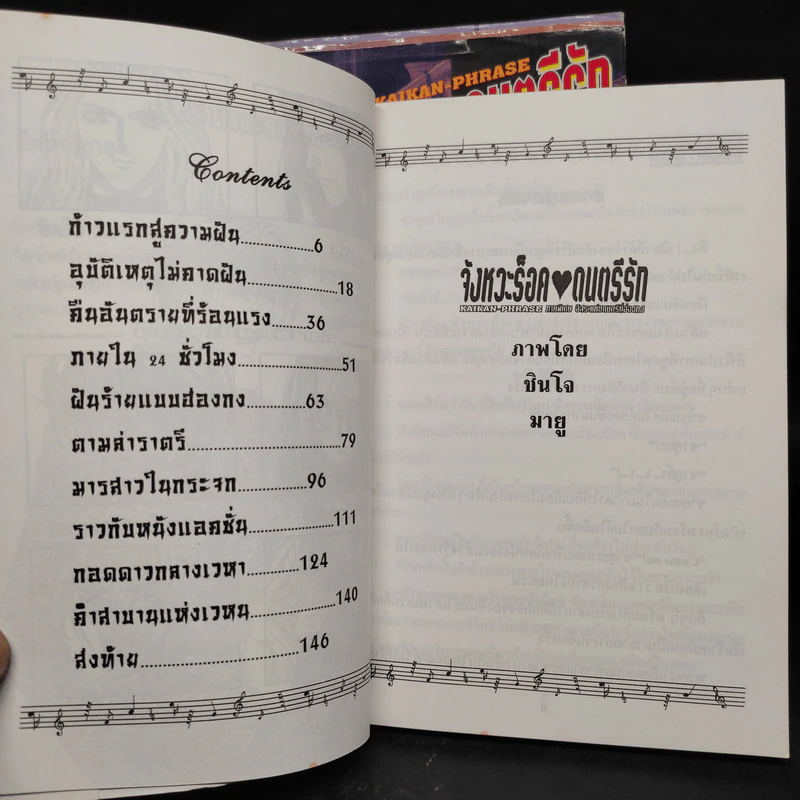 KAIKAN-PHRASE
Contents
ก้าวแรกสู่ความฝัน 6
อุบัติเหตุไม่คาดฝัน 18
คืนอันตรายที่ร้อนแรง 36
ภายใน 24 ชั่วโมง 51
ฝันร้ายแบบฮ่องกง 63
ตามล่าราตรี 79
มารสาวในกระจก 96
ราวกับหนังแอคชั่น 111
กอดดาวกลางเวหา 124
คำสาบานแห่งเวหน 140
ส่งท้าย 146
จังหวะร็อค♥ดนตรีรัก
KAIKAN-PHRASE
ภาพโดย
ชินโจ
มายู